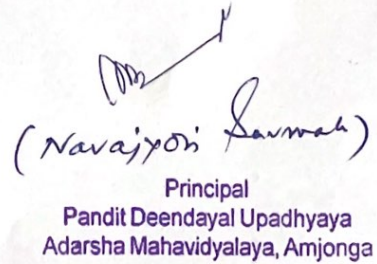 (Navajyoti Sarmah)
Principal
Pandit Deendayal Upadhyaya
Adarsha Mahavidyalaya, Amjonga